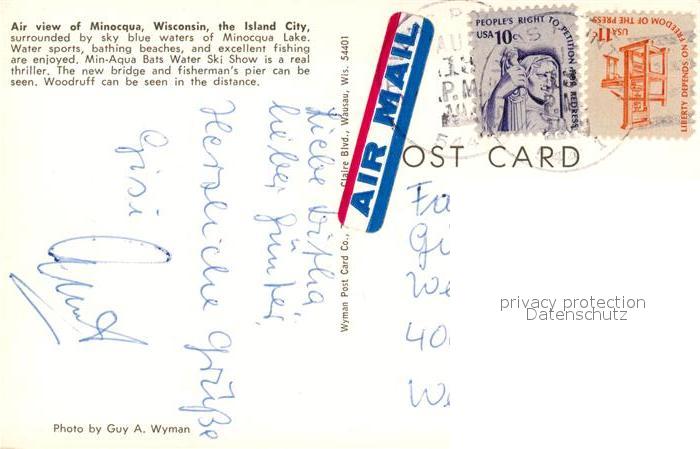 Air view of Minocqua, Wisconsin, the Island City,
surrounded by sky blue waters of Minocqua Lake.
Water sports, bathing beaches, and excellent fishing
are enjoyed. Min-Aqua Bats Water Ski Show is a real
thriller. The new bridge and fisherman's pier can be
seen. Woodruff can be seen in the distance.
Liebe
lieber Günter,
Herzliche Grüße
Gisi
Photo by Guy A. Wyman
Wyman Post Card Co., Claire Blvd., Wausau, Wis. 54401
AIR MAIL
P.M.
PEOPLE'S RIGHT TO PETITION FOR REDRESS
USA 10c
LIBERTY DEPENDS ON FREEDOM OF THE PRESS
OST CARD
Fa
Gü
We
40
We
privacy protection
Datenschutz